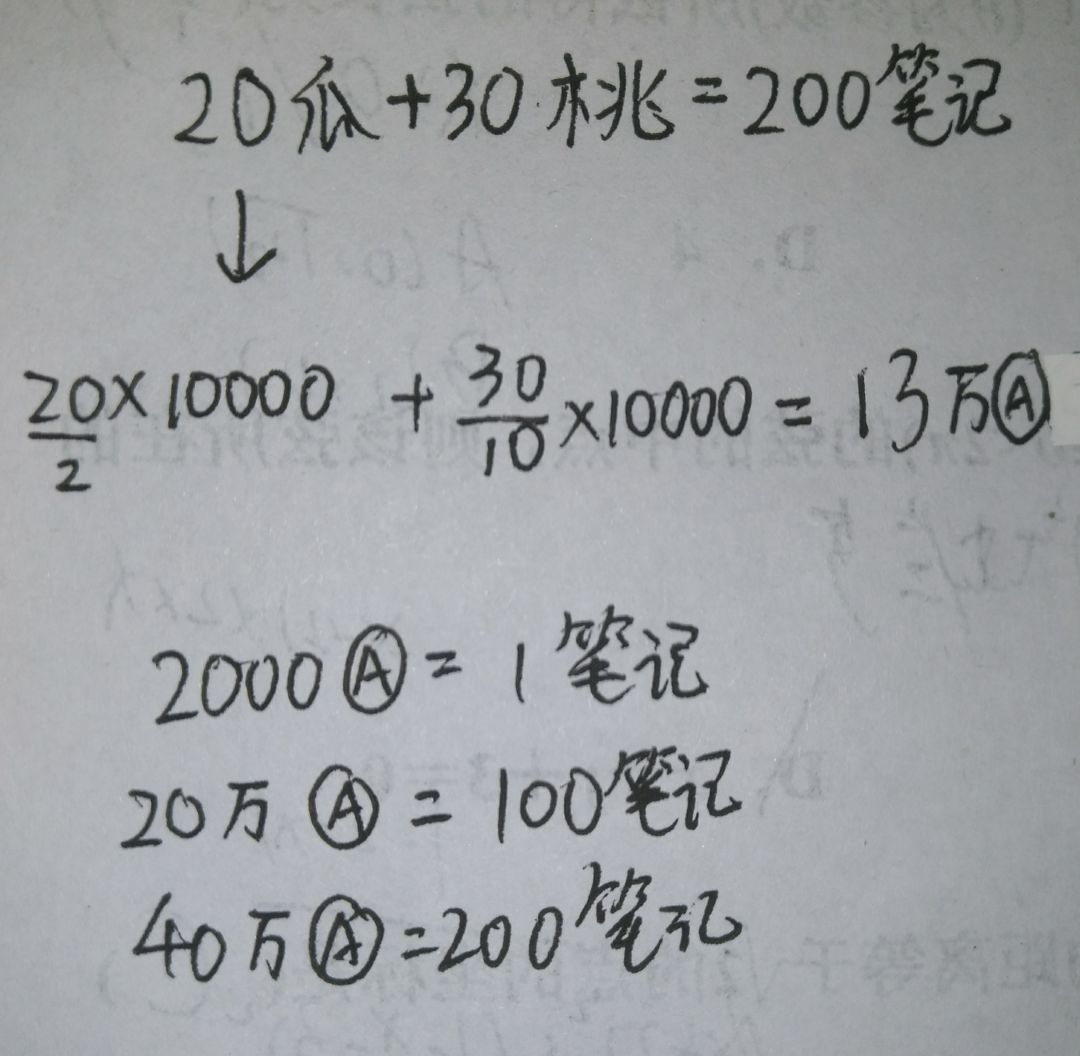 20瓜+30桃=200笔记
↓
20/2×10000 + 30/10×10000 = 13万Ⓐ
2000Ⓐ = 1笔记
20万Ⓐ = 100笔记
40万Ⓐ=200笔记